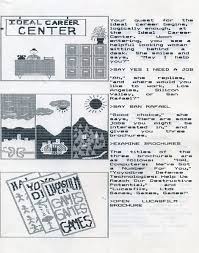 IDEAL CAREER
CENTER
Your quest for the
ideal career begins,
logically enough, at
the Ideal Career
Center. Upon
entering, you see a
helpful looking woman
sitting behind a
desk. She smiles and
says, "May I help
you?"
>SAY YES I NEED A JOB
"Ah," she replies,
"and where would you
like to work, Los
Angeles, Silicon
Valley, or San
Rafael?"
>SAY SAN RAFAEL
"Good choice," she
says, "here are some
jobs you might be
interested in," and
gives you three
brochures.
>EXAMINE BROCHURES
The titles of the
three brochures are
as follows: "HAL
Computers: We've Got
a Number For You,"
"Yoyodyne Defense
Technologies: Help Us
Reach Our Destructive
Potential," and
"Lucasfilm, Ltd:
Games, Games, Games!"
>OPEN LUCASFILM
BROCHURE
HAL
YOYO
LUCASFILM
GAMES